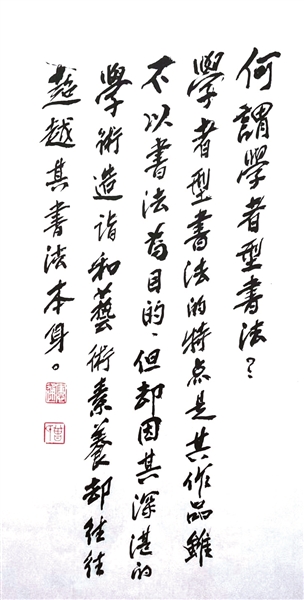 何謂學者型書法?
學者型書法的特点是其作品雖
不以書法為目的,但却因其深湛的
學術造詣和藝術素養却往往
超越其書法本身。